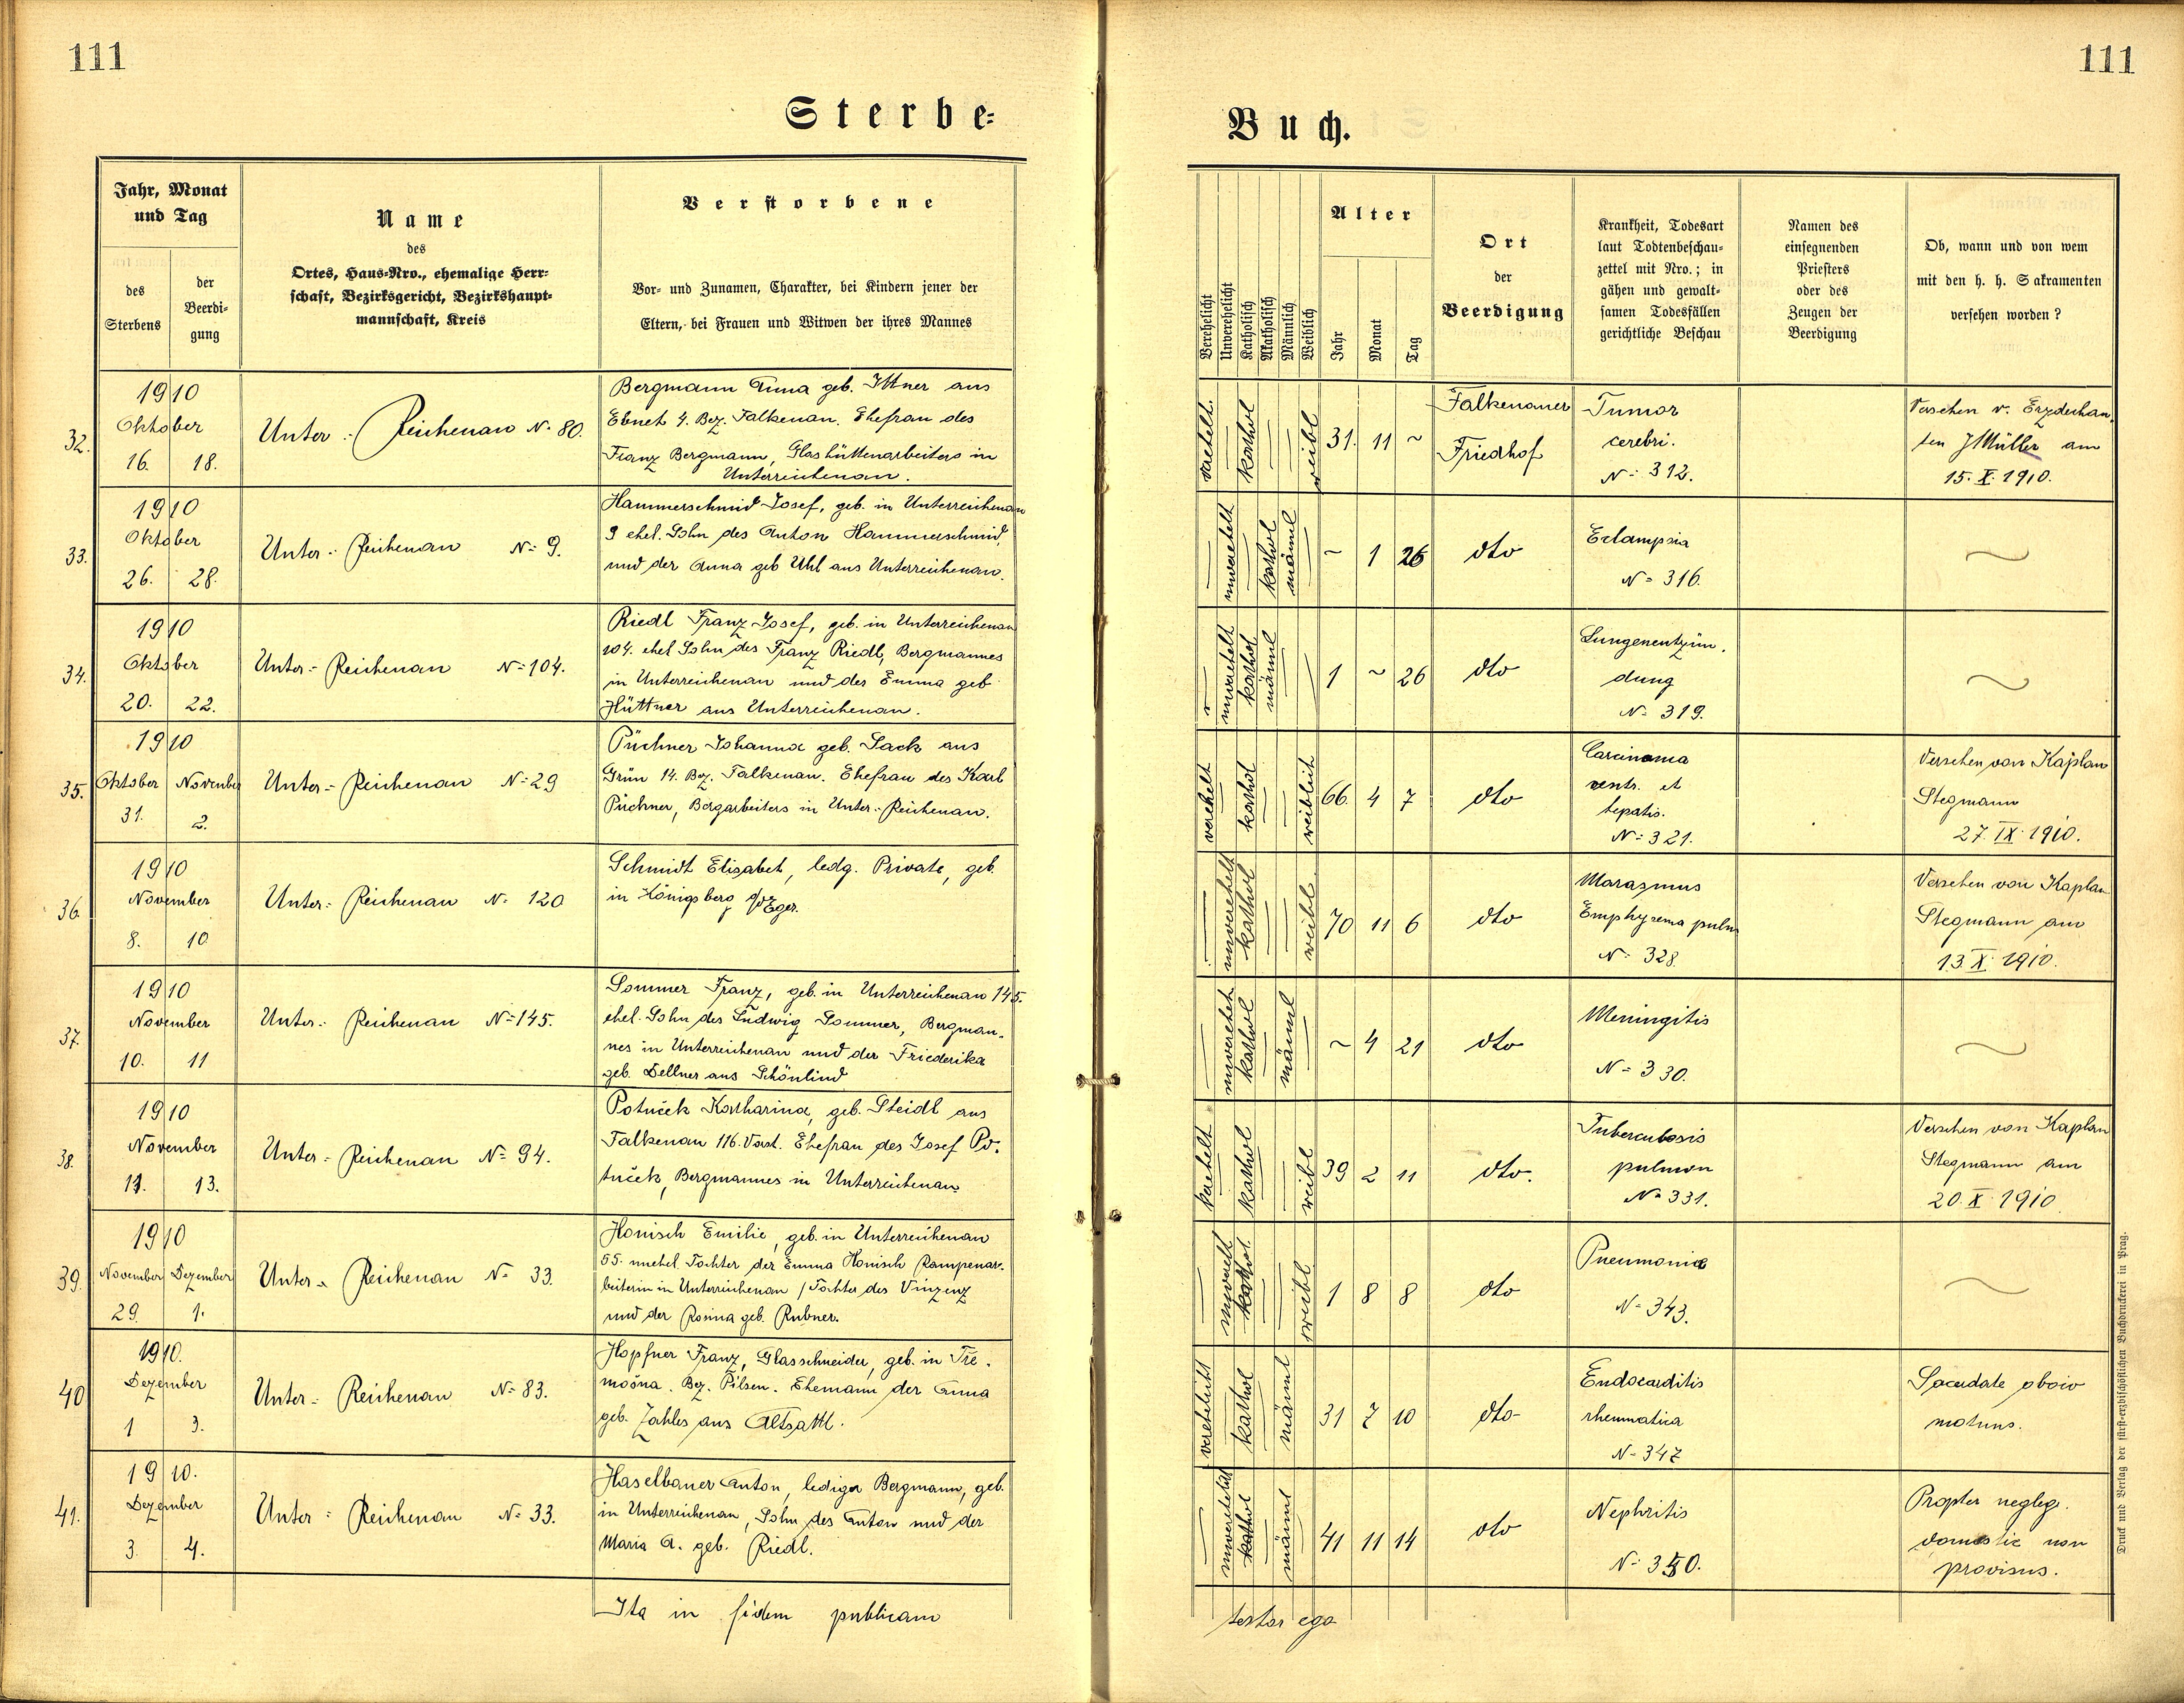 111
111
Sterbe-
Buch.
Jahr, Monat
und Tag
des
Sterbens
der
Beerdi-
gung
Name
des
Ortes, Haus-Nro., ehemalige Herr-
schaft, Bezirksgericht, Bezirkshaupt-
mannschaft, Kreis
Verstorbene
Vor- und Zunamen, Charakter, bei Kindern jener der
Eltern, bei Frauen und Witwen der ihres Mannes
Verehelicht
Unverehelicht
Katholisch
Akatholisch
Männlich
Weiblich
Alter
Jahr
Monat
Tag
Ort
der
Beerdigung
Krankheit, Todesart
laut Todtenbeschau-
zettel mit Nro.; in
gähen und gewalt-
samen Todesfällen
gerichtliche Beschau
Namen des
einsegnenden
Priesters
oder des
Zeugen der
Beerdigung
Ob, wann und von wem
mit den h. h. Sakramenten
versehen worden?
32.
1910
Oktober
16. 18.
Unter-Reichenau N. 80.
Bergmann Anna geb. Ittner aus
Ebnet 4. Bez. Falkenau. Ehefrau des
Franz Bergmann, Glashüttenarbeiters in
Unterreichenau.
kathol weibl
31. 11 ~
Falkenauer
Friedhof
Tumor
cerebri.
N: 312.
Versehen v. Erzdechan-
ten J Müller am
15. X. 1910.
33.
1910
Oktober
26. 28.
Unter-Reichenau N: 9.
Hammerschmid Josef, geb. in Unterreichenau
9 ehel. Sohn des Anton Hammerschmid,
und der Anna geb Uhl aus Unterreichenau.
kathol männl
~ 1 26
dto
Eclampsia
N= 316.
34.
1910
Oktober
20. 22.
Unter-Reichenau N: 104.
Riedl Franz Josef, geb. in Unterreichenau
104. ehel Sohn des Franz Riedl, Bergmannes
in Unterreichenau und der Emma geb
Hüttner aus Unterreichenau.
kathol männl
1 ~ 26
dto
Lungenentzün-
dung
N: 319.
35.
1910
Oktober November
31. 2.
Unter-Reichenau N: 29
Püchner Johanna geb. Sack aus
Grün 14. Bez. Falkenau. Ehefrau des Karl
Püchner, Bergarbeiters in Unter-Reichenau.
verehelt kathol weiblich
66. 4 7
dto
Carcinoma
ventr. et
hepatis.
N: 321.
Versehen von Kaplan
Stegmann
27. IX. 1910.
36.
1910
November
8. 10
Unter-Reichenau N. 120
Schmidt Elisabet, ledg. Private, geb.
in Königsberg a/d Eger.
unverehelt kathol weibl.
70 11 6
dto
Marasmus
Emphysema pulm
N: 328.
Versehen von Kaplan
Stegmann am
13. X. 1910.
37.
1910
November
10. 11
Unter-Reichenau N: 145.
Sommer Franz, geb. in Unterreichenau 145.
ehel. Sohn des Ludwig Sommer, Bergman-
nes in Unterreichenau und der Friederika
geb. Dellner aus Schönlind
unverehel kathol männl
~ 4 21
dto
Meningitis
N= 330.
38.
1910
November
11. 13.
Unter-Reichenau N: 94.
Potuček Katharina, geb. Steidl aus
Falkenau 116. Vorst. Ehefrau des Josef Po-
tuček, Bergmannes in Unterreichenau
kathol weibl
39 2 11
dto.
Tuberculosis
pulmon
N= 331.
Versehen von Kaplan
Stegmann am
20. X. 1910
39.
1910
November Dezember
29. 1.
Unter-Reichenau N: 33.
Honisch Emilie, geb. in Unterreichenau
55. unehel. Tochter der Emma Honisch Rampenar-
beiterin in Unterreichenau / Tochter des Vinzenz
und der Rosina geb. Rubner.
kathol. weibl
1 8 8
dto
Pneumonia
N= 343.
40
1910.
Dezember
1 3.
Unter-Reichenau N: 83.
Hopfner Franz, Glasschneider, geb. in Tře-
mošna. Bez. Pilsen. Ehemann der Anna
geb. Zahles aus Altsattl.
verehelicht kathol männl
31 7 10
dto-
Endocarditis
rheumatica
N- 347
Sacerdote obvio
motuus.
41.
1910.
Dezember
3. 4.
Unter-Reichenau N: 33.
Haselbauer Anton, lediger Bergmann, geb.
in Unterreichenau, Sohn des Anton und der
Maria A. geb. Riedl.
kathol männl
41 11 14
dto
Nephritis
N: 350.
Propter neglig.
domestic non
provisus.
Ita in fidem publicam
testor ego
Druck und Verlag der fürst-erzbischöflichen Buchdruckerei in Prag.